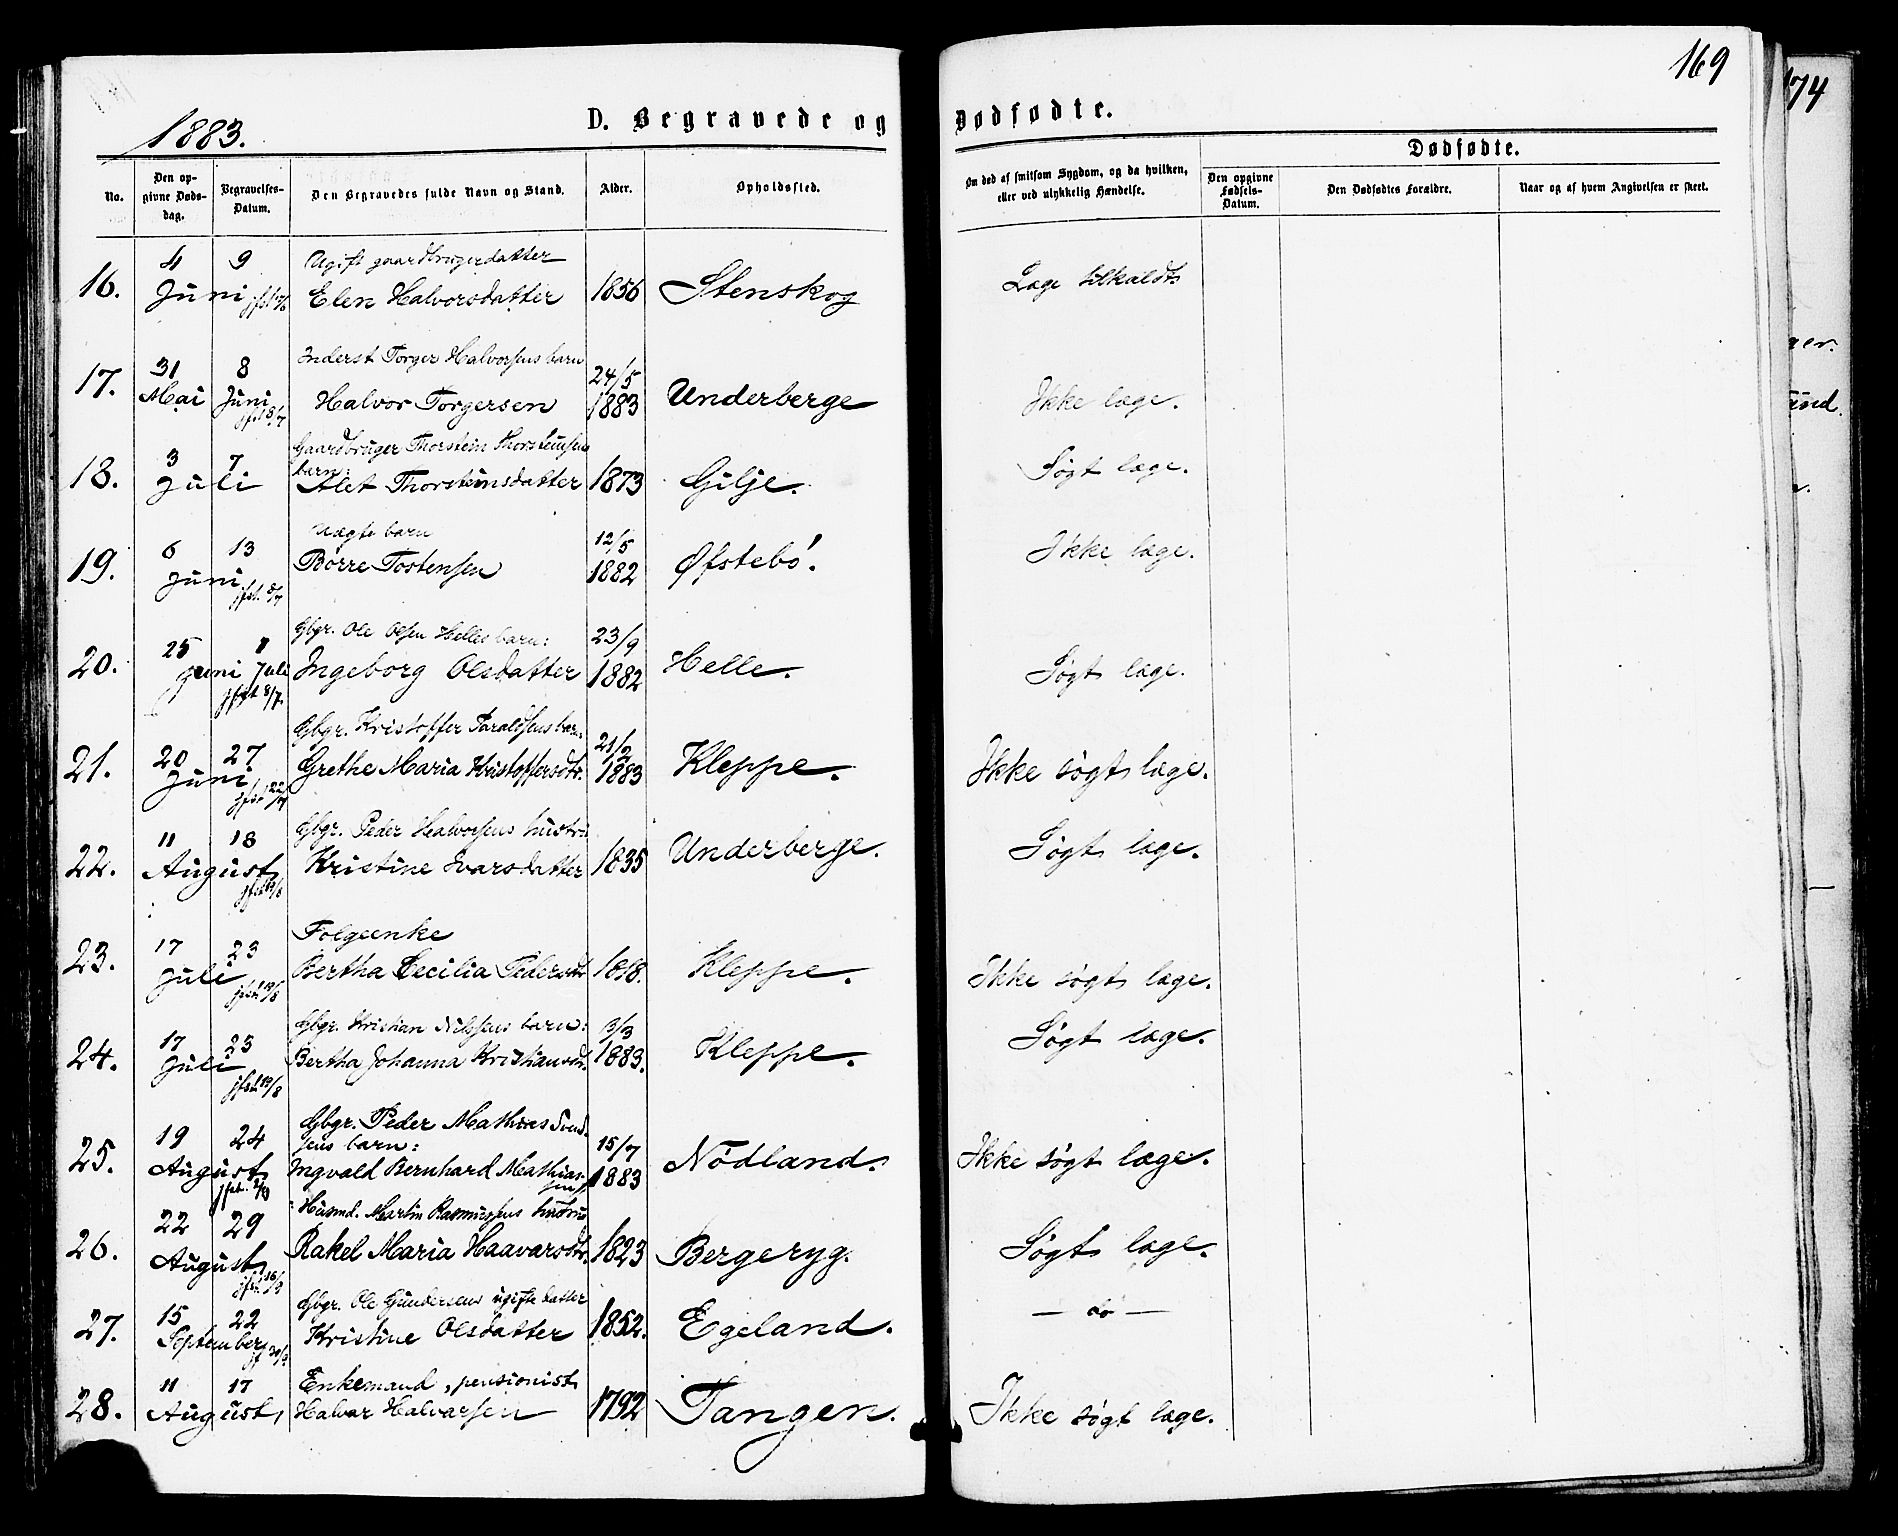 169
174
1883.
D. Begravede og Dødfødte.
No.
Den opgivne Dødsdag.
Begravelses-Datum.
Den Begravedes fulde Navn og Stand.
Alder.
Opholdssted.
Om død af smitsom Sygdom, og da hvilken, eller ved ulykkelig Hændelse.
Dødfødte.
Den opgivne Fødsels-Datum.
Den Dødfødtes Forældre.
Naar og af hvem Angivelsen er skeet.
4 9 Ugift gaardbrugerdatter
16. Juni Elen Halvorsdatter 1856 Stenskog Læge tilkaldt
31 8 Inderst Torger Halvorsens barn 24/5
17. Mai Juni jfst 8/7 Halvor Torgersen 1883 Underberge Ikke læge.
3 7 Gaardbruger Thorstein Thorsteinsens barn:
18. Juli Alet Thorsteinsdatter 1873 Gilje. Søgt læge.
6 13 Uægte barn 12/5
19. Juni jfst. 8/7 Børre Tostensen 1882 Øfstebø. Ikke læge.
25 1 Gbgr. Ole Olsen Helles barn: 23/9
20. Juni Juli jfst 8/7. Ingeborg Olsdatter 1882 Helle. Søgt læge.
20 27 Gbgr. Kristoffer Taraldsens barn: 21/2
21. Juni jfst 22/7 Grethe Maria Kristoffersdtr. 1883 Kleppe. Ikke søgt læge.
11 18 Gbgr. Peder Halvorsens hustru
22. August Kristine Ivarsdatter 1835 Underberge. Søgt læge.
17 23 Folgeenke
23. Juli jfst 19/8 Bertha Cecilia Pedersdt 1818. Kleppe. Ikke søgt læge.
17 23 Gbgr. Kristian Nilssens barn: 3/3
24. Juli jfst 19/8 Bertha Johanna Kristiansdt. 1883. Kleppe. Søgt læge.
19 24 Gbgr. Peder Mathias Svendsens barn: 15/7
25. August jfst. 2/9 Ingvald Bernhard Mathiassen 1883 Nödland. Ikke søgt læge.
22 29 Husmd. Martin Rasmussens hustru
26. August jfst 16/9 Rakel Maria Haavarsdtr. 1823 Bergeryg. Søgt læge.
15 22 Gbgr. Ole Gundersens ugifte datter
27. September jf 30/9 Kristine Olsdatter 1852. Egeland. — do —
11 17 Enkemand, pensionist
28. August, Halvor Halvorsen 1792 Tangen. Ikke søgt læge.